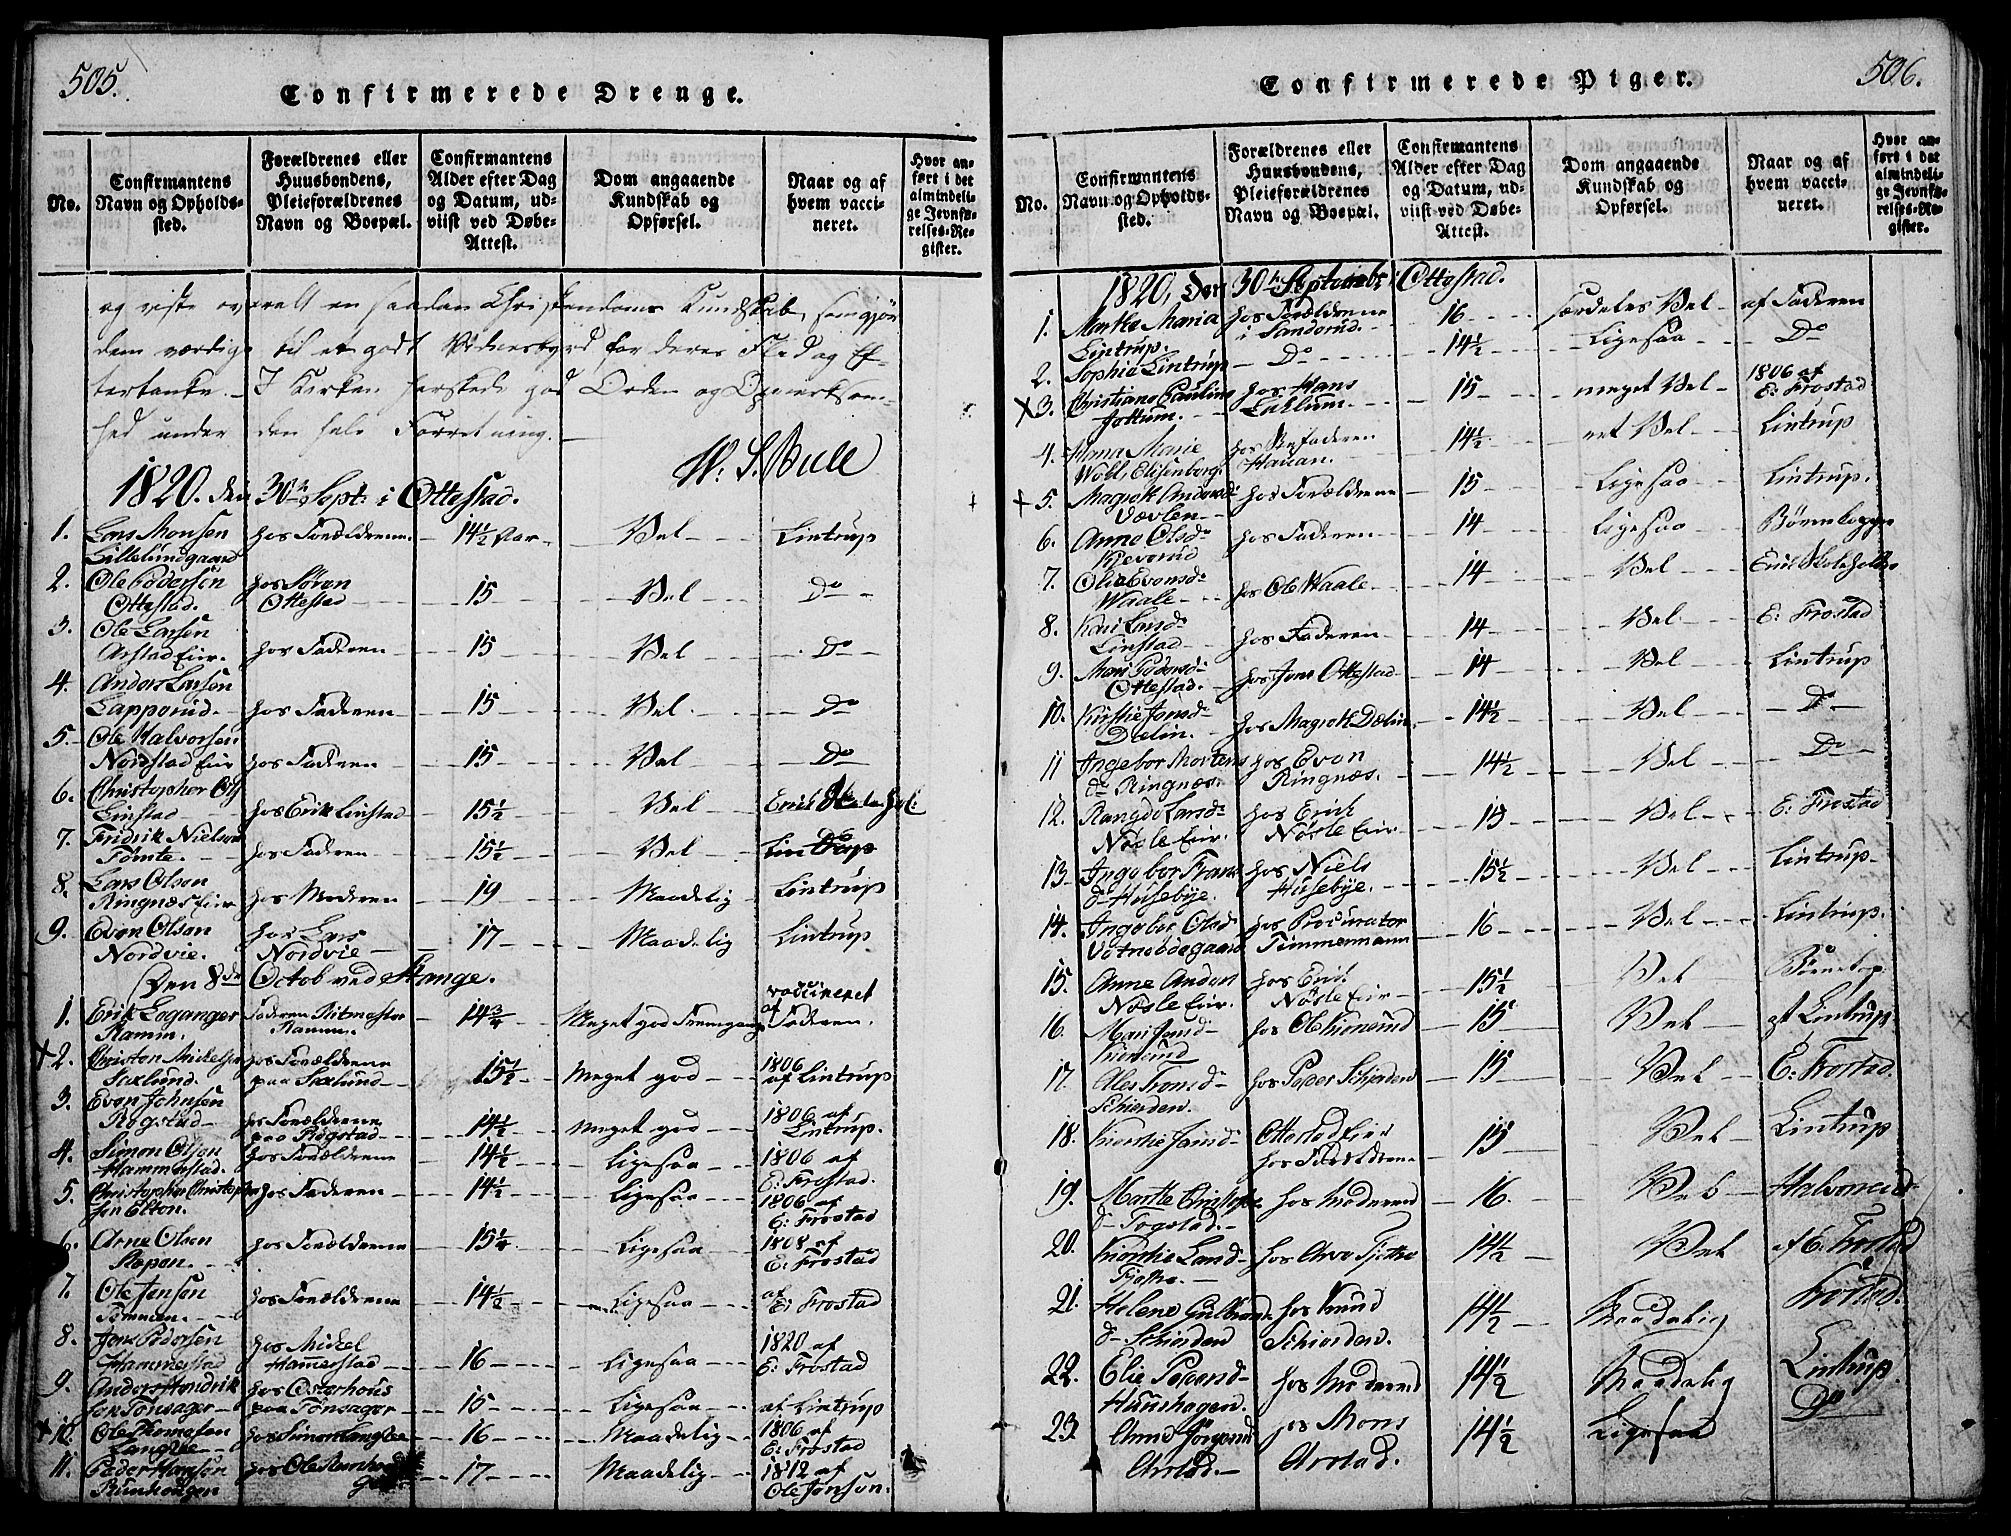 505.
Confirmerede Drenge.
No.
Confirmantens Navn og Opholdssted.
Forældrenes eller Huusbondens, Pleieforældrenes Navn og Boepæl.
Confirmantens Alder efter Dag og Datum, udviist ved Døbe-Attest.
Dom angaaende Kundskab og Opførsel.
Naar og af hvem vaccineret.
Hvor anført i det almindelige Jevnførelses-Register.
og viste overalt en saadan Christendoms Kundskab, som gjør
dem værdige til et godt Vidnesbyrd for deres Flid og Ef-
tertanke. I Kirken herskede god Orden og Opmerksom-
hed under den hele Forretning.
W. S. Bull
1820. den 30te Sept: i Ottestad.
1. Lars Monsen Lillelundgaard hos Forældrene 14½ Aar Vel Lintrup
2. Ole Pedersen Ottestad. hos Søren Ottestad 15 Vel Do
3. Ole Larsen Arstad Eier. hos Faderen 15 Vel Do
4. Anders Larsen Lapperud. hos Faderen 15 Vel Do
5. Ole Halvorsen Nordstad Eier hos Faderen 15 Vel Do
6. Christopher Ols Linstad hos Erik Linstad 15½ Vel Erich
7. Fridrik Nielsen Tømte. hos Faderen 15½ Vel Lintrup
8. Lars Olsen Ringnæs Eier hos Moderen 19 Maadelig Lintrup
9. Even Olsen Nordvie. hos Lars Nordvie 17 Maadelig Lintrup
Den 8de Octob ved Stange.
1. Erik Leganger Ramm. Faderen Ritmester Ramm. 14¾ Meget god Fremgang vaccineret af Faderen.
x 2. Christen Mickelsen Saxlund. hos Forældrene paa Saxlund 15½ Meget god 1806 af Lintrup
3. Even Johnsen Rogstad hos Forældrene paa Rogstad 14½ Meget god 1806 af Lintrup.
4. Simon Olsen Hammerstad. hos Forældrene 14½ Ligesaa 1806 af E: Frostad.
5. Christopher Christophersen Elton. hos Faderen 14½ Ligesaa 1806 af E: Frostad
6. Arne Olsen hos Forældrene 15¼ Ligesaa 1808 af E: Frostad
7. Ole Jensen Tommen. hos Forældrene 14½ Ligesaa af E: Frostad
8. Jens Pedersen Hammerstad hos Mickel Hammerstad 16 Ligesaa 1820 af E: Frostad
9. Anders Hendriksen Tønsager hos Osterhous paa Tønsager 15 Ligesaa af Lintrup
x 10. Ole Thomesen hos Simon 16 Maadelig 1806 af E: Frostad
11. Peder Hansen hos Ole 17 Maadelig 1812 af Ole Jonson.
506.
Confirmerede Piger.
No.
Confirmantens Navn og Opholdssted.
Forældrenes eller Huusbondens, Pleieforældrenes Navn og Boepæl.
Confirmantens Alder efter Dag og Datum, udviist ved Døbe-Attest.
Dom angaaende Kundskab og Opførsel.
Naar og af hvem vaccineret.
Hvor anført i det almindelige Jevnførelses-Register.
1820, Den 30te Septembr i Ottestad.
1. Marthe Maria Lintrup. hos Forældrene i Sanderud. 16 særdeles Vel af Faderen
2. Sophie Lintrup Do 14½ Ligesaa Do
x 3. Christiane Pauline hos Hans 15 meget Vel 1806 af E: Frostad
4. Hana Marie hos Stefaderen 14½ ret Vel Lintrup
x 5. Magrete Andersd: hos Forældrene 15 Ligesaa Lintrup.
6. Anne Olsd: hos Faderen 14 Ligesaa
7. Olia Evensd: Waale hos Ole Waale 14 Vel Erik
8. Kari Larsd: Linstad hos Faderen 14 Vel E: Frostad
9. Mari Pedersd: Ottestad. hos Jens Ottestad 14 Vel Lintrup
10. Kirstie Jensd: Dælin. hos Magrete Dælin 14½ Vel Do
11 Ingebor Mortensd: Ringnæs. hos Even Ringnæs. 14½ Vel Do
12. Rangdi Larsd: Nøsle Eier. hos Erich Nøsle Eier 15 Vel E: Frostad
13. Ingebor Frans d: Husebye. hos Niels Husebye. 15½ Vel Lintrup
14. Ingebor Olsd: hos Procurator Timmermann 16 Vel Lintrup.
15. Anne Anders Nøsle Eier. hos Erich Nøsle Eier 15½ Vel
16. Mari Jensd: hos Ole 15 Vel Lintrup.
17. Ales Fransd: Schierden. hos Peder Schierden 15 Vel E: Frostad.
18. Kirstie Ottestad Eier hos Forældrene 15 Vel Lintrup
19. Marthe hos Moderen 16. Vel
20. Kirstie Larsd: hos 14½ Vel af E: Frostad
21. Helene Gulbrands d: Schierden hos Knud Schierden. 14½ Maadelig Frostad.
22. Elie hos Moderen 14½ Maadelig Lintrup.
23. Anne Jørgensd: Arstad. hos Mons Arstad. 14½ Ligesaa Do